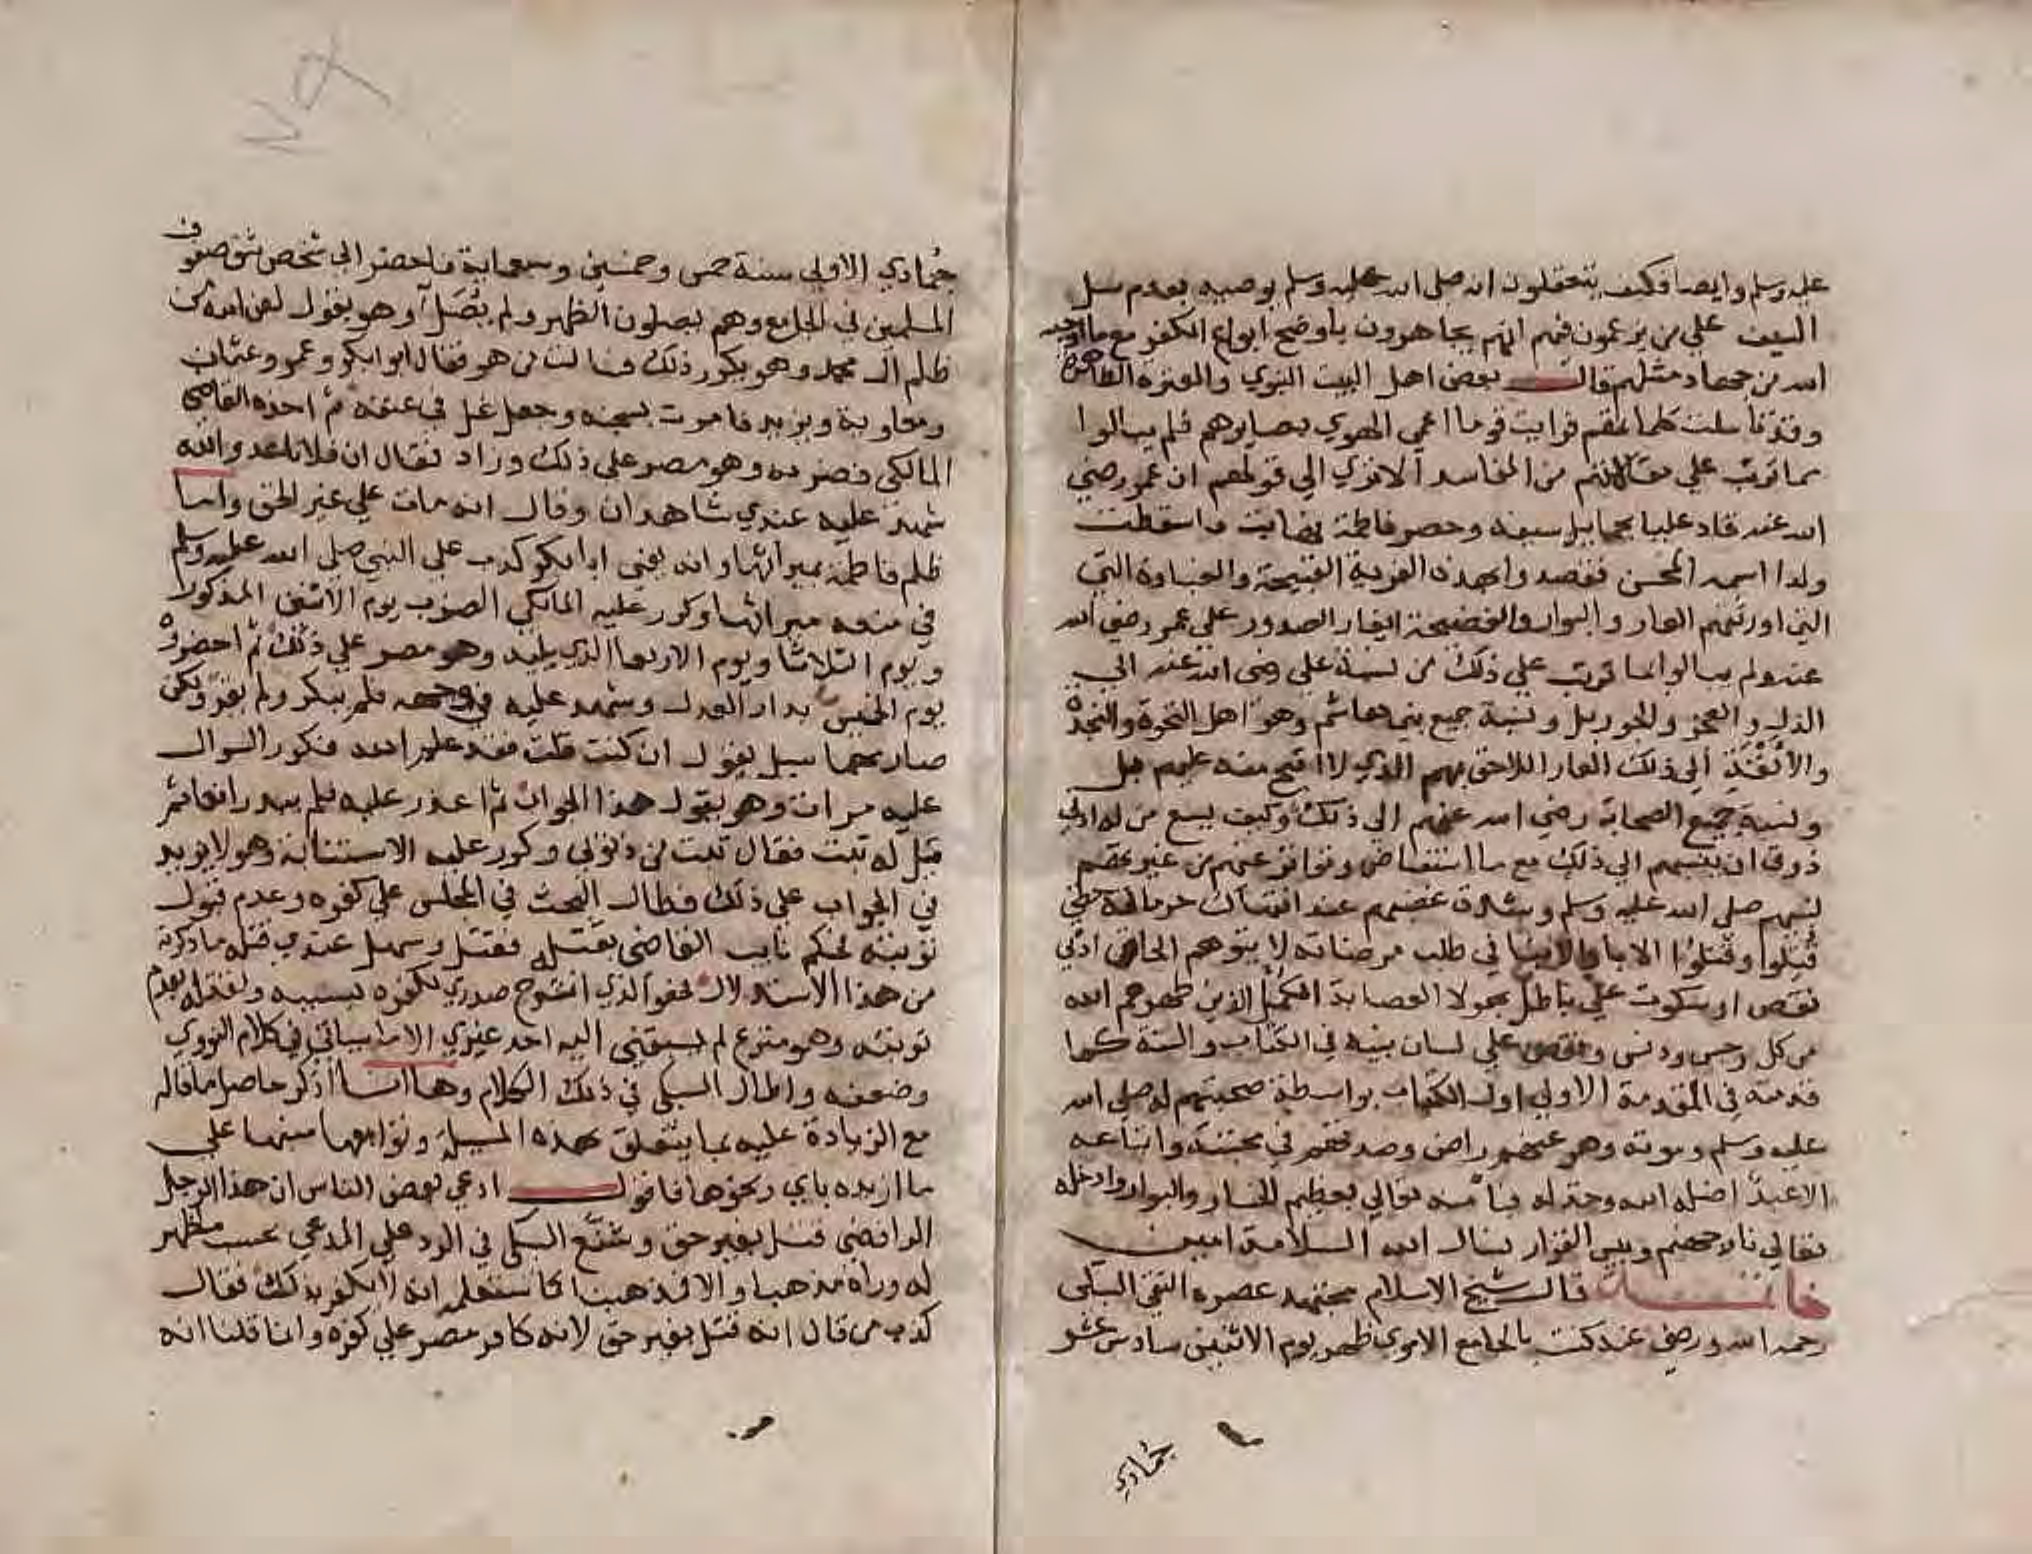 عليه وسلم وايضا فكيف يتعقلون انه صلى الله عليه وسلم يوصيه بعدم سل
السيف علي من يزعمون فيهم انهم يجاهرون بأوضح ابواع الكفر مع ما اوجبه
الله من جهاد مثلهم قال بعض اهل البيت النبوي والعترة الطاهرة
وقد تأملت كلماتهم فرايت قوما اعمي الهوي بصايرهم فلم يبالوا
بما ترتب علي مقالاتهم من المفاسد الا تري الي قولهم ان عمر رضي
الله عنه قاد عليا بحمايل سيفه وحصر فاطمة فهابت فاسقطت
ولدا اسمه المحسن فقصدوا بهذه الفرية القبيحة والغباوة التي
التي اورثتهم العار والبوار والفضيحة ايغار الصدور علي عمر رضي الله
عنه ولم يبالوا بما ترتب علي ذلك من نسبة علي رضي الله عنه الي
الذل والعجز والخور بل ونسبة جميع بني هاشم وهو اهل النخوة والنجدة
والأنفة الي ذلك العار اللاحق بهم الذي لا اقبح منه عليهم بل
ونسبة جميع الصحابة رضي الله عنهم الي ذلك وكيف يسع من له ادني
ذوق ان ينسبهم الي ذلك مع ما استفاض وتواتر عنهم من غيرتهم
لنبيهم صلى الله عليه وسلم وشدة غضبهم عند انتهاك حرماته حتي
قتلوا وقتلوا الابا والابنا في طلب مرضاته لا يتوهم الحاق ادني
نقص او سكوت علي باطل بهولا العصابة الكمل الذين طهرهم الله
من كل رجس ودنس ونقص علي لسان نبيه في الكتاب والسنة كما
قدمته في المقدمة الاولي اول الكتاب بواسطة صحبتهم له صلى الله
عليه وسلم وموته وهو عنهم راض وصدقهم في محبته واتباعه
الا عبدا اضله الله وخذله فباء منه تعالي بعظيم الخسار والبوار وادخله
تعالي نار جهنم وبيس القرار نسال الله السلامة امين
خاتمة قال شيخ الاسلام مجتهد عصره التقي السبكي
رحمه الله ورضي عنه كنت بالجامع الاموي ظهر يوم الاثنين سادس عشر
جمادي
جُمادي الاولي سنة خمس وخمسين وسبعماية فاحضر الي شخص شق صفوف
المسلمين في الجامع وهم يصلون الظهر ولم يصل وهو يقول لعن الله من
ظلم آل محمد وهو يكرر ذلك فسالت من هو فقال ابو ابكر وعمر وعثمان
ومعاوية ويزيد فامرت بسجنه وجعل غل في عنقه ثم اخذه القاضي
المالكي فضربه وهو مصر علي ذلك وزاد فقال ان فلانا عدو الله
شهد عليه عندي شاهدان وقال انه مات علي غير الحق وانه
ظلم فاطمة ميراثها وانه يعني ابا بكر كذب علي النبي صلى الله عليه وسلم
في منعه ميراثها وكرر عليه المالكي الضرب يوم الاثنين المذكور
ويوم الثلاثا ويوم الاربعا الذي يليه وهو مصر علي ذلك ثم احضروه
يوم الخميس بدار العدل وشهد عليه في وجهه فلم ينكر ولم يقر ولكن
صار كلما سيل يقول ان كنت قلت فقد علم الله فكرر السوال
عليه مرات وهو يقول هذا الجواب ثم اعذر عليه فلم يبد رافعا ثم
قيل له تب فقال تبت من ذنوبي وكرر عليه الاستتابة وهو لا يزيد
في الجواب علي ذلك فطال البحث في المجلس علي كفره وعدم قبول
توبته فحكم نايب القاضي بقتله فقتل وسهل عندي قتله ما ذكرته
من هذا الاستدلال فهو الذي انشرح صدري لكفره بسببه ولقتله لعدم
توبته وهو منزع لم يسبقني اليه احد غيري الا ما سياتي في كلام النووي
وضعفه واطال السبكي في ذلك الكلام وها انا اذكر حاصل ما قاله
مع الزيادة عليه بما يتعلق بهذه المسيلة وتوابعها منبها علي
ما ازيده باي ونحوها فاقول ادعي بعض الناس ان هذا الرجل
الرافضي قتل بغير حق وشنع السبكي في الرد علي المدعي بحسب ما ظهر
له وراه مذهبا والا فمذهبنا كما ستعلم انه لا يكفر بذلك فقال
كذب من قال انه قتل بغير حق لانه كافر مصر علي كفره وانما قلنا انه